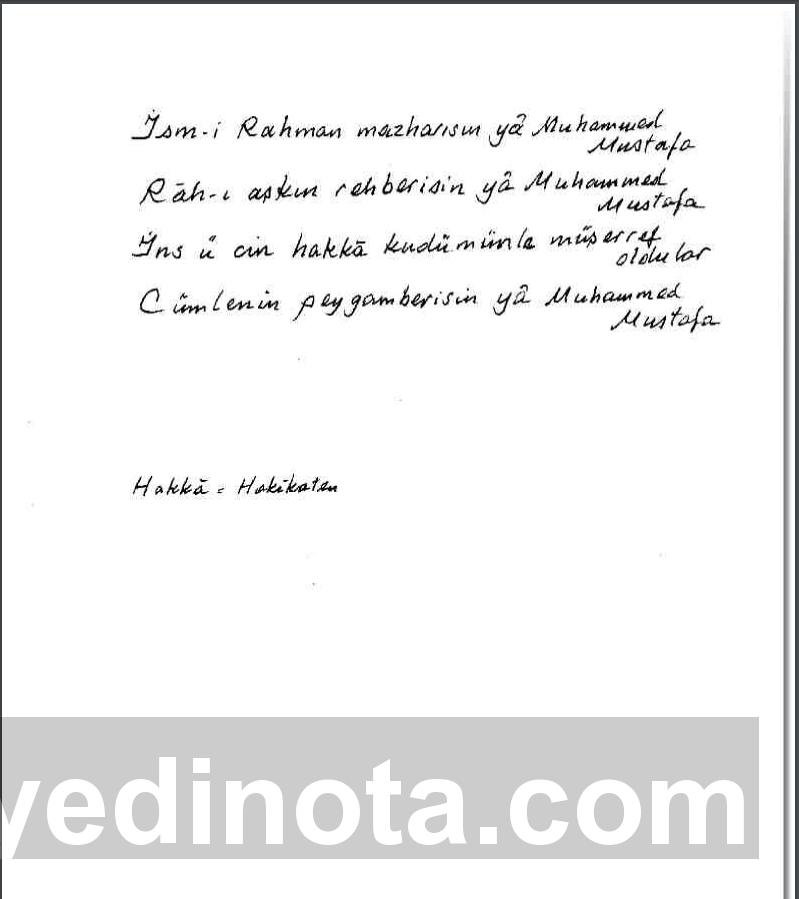 İsm-i Rahman mazharısın yâ Muhammed
Mustafa
Râh-ı aşkın rehberisin yâ Muhammed
Mustafa
İns ü cin hakkā kudümünle müşerref
oldular
Cümlenin peygamberisin yâ Muhammed
Mustafa
Hakkā = Hakikaten
yedinota.com